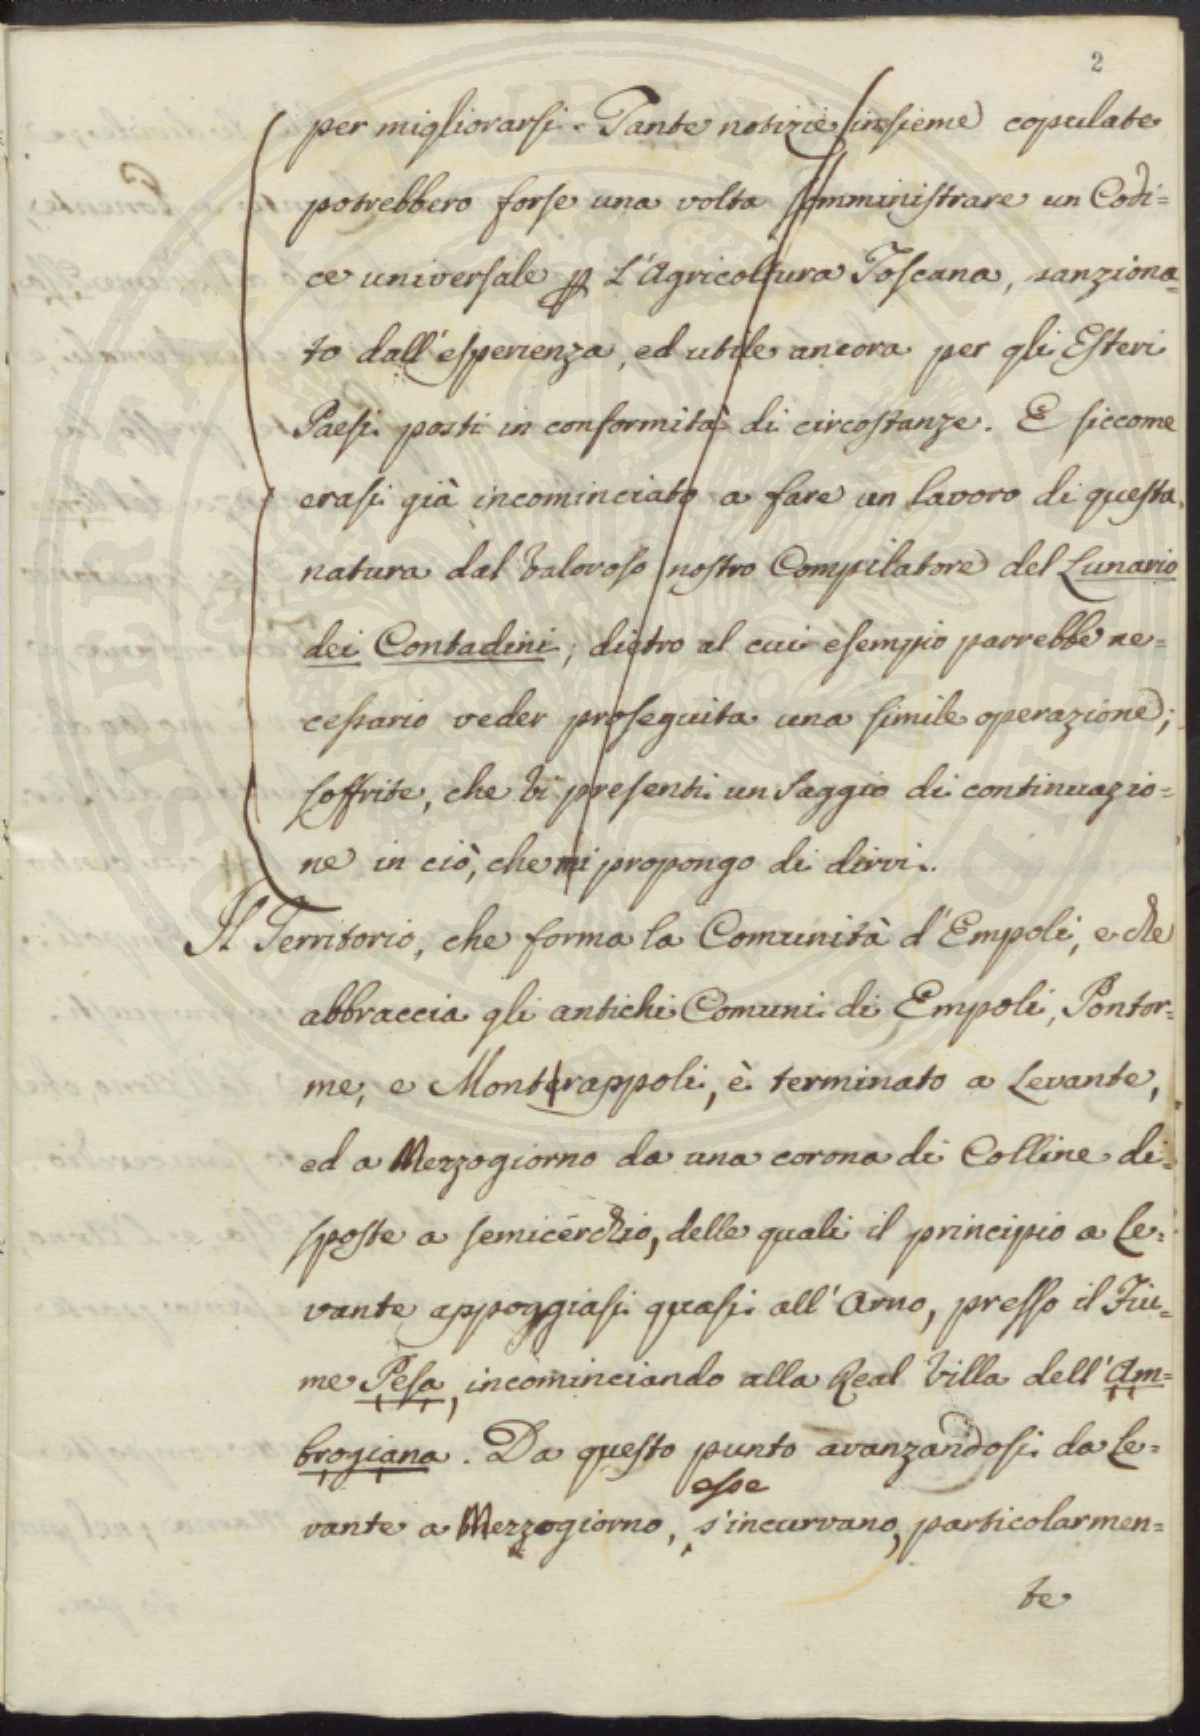 2
per migliorarsi. Tante notizie insieme copulate
potrebbero forse una volta somministrare un Codi=
ce universale p L'Agricoltura Toscana, sanziona=
to dall'esperienza, ed utile ancora per gli Esteri
Paesi posti in conformità di circostanze. E siccome
erasi già incominciato a fare un lavoro di questa
natura dal valoroso nostro Compilatore del Lunario
dei Contadini; dietro al cui esempio parrebbe ne=
cessario veder proseguita una simile operazione;
soffrite, che vi presenti un saggio di continuazio=
ne in ciò, che mi propongo di dirvi.
Il Territorio, che forma la Comunità d'Empoli, e che
abbraccia gli antichi Comuni di Empoli, Pontor=
me, e Monterappoli, è terminato a Levante,
ed a Mezzogiorno da una corona di Colline di=
sposte a semicerchio, delle quali il principio a Le=
vante appoggiasi quasi all'Arno, presso il Fiu=
me Pesa, incominciando alla Real Villa dell'Am=
brogiana. Da questo punto avanzandosi da Le=
esse
vante a Mezzogiorno, s'incurvano, particolarmen=
te